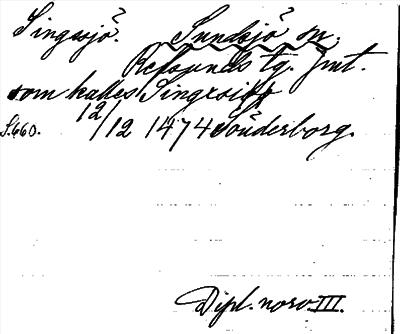 Singssjö? Sundsjö sn.
Refsunds tg. Jmt.
som kalles Singxsiö
S.660. 12/12 1474 Sönderborg.
Dipl. norv. III.